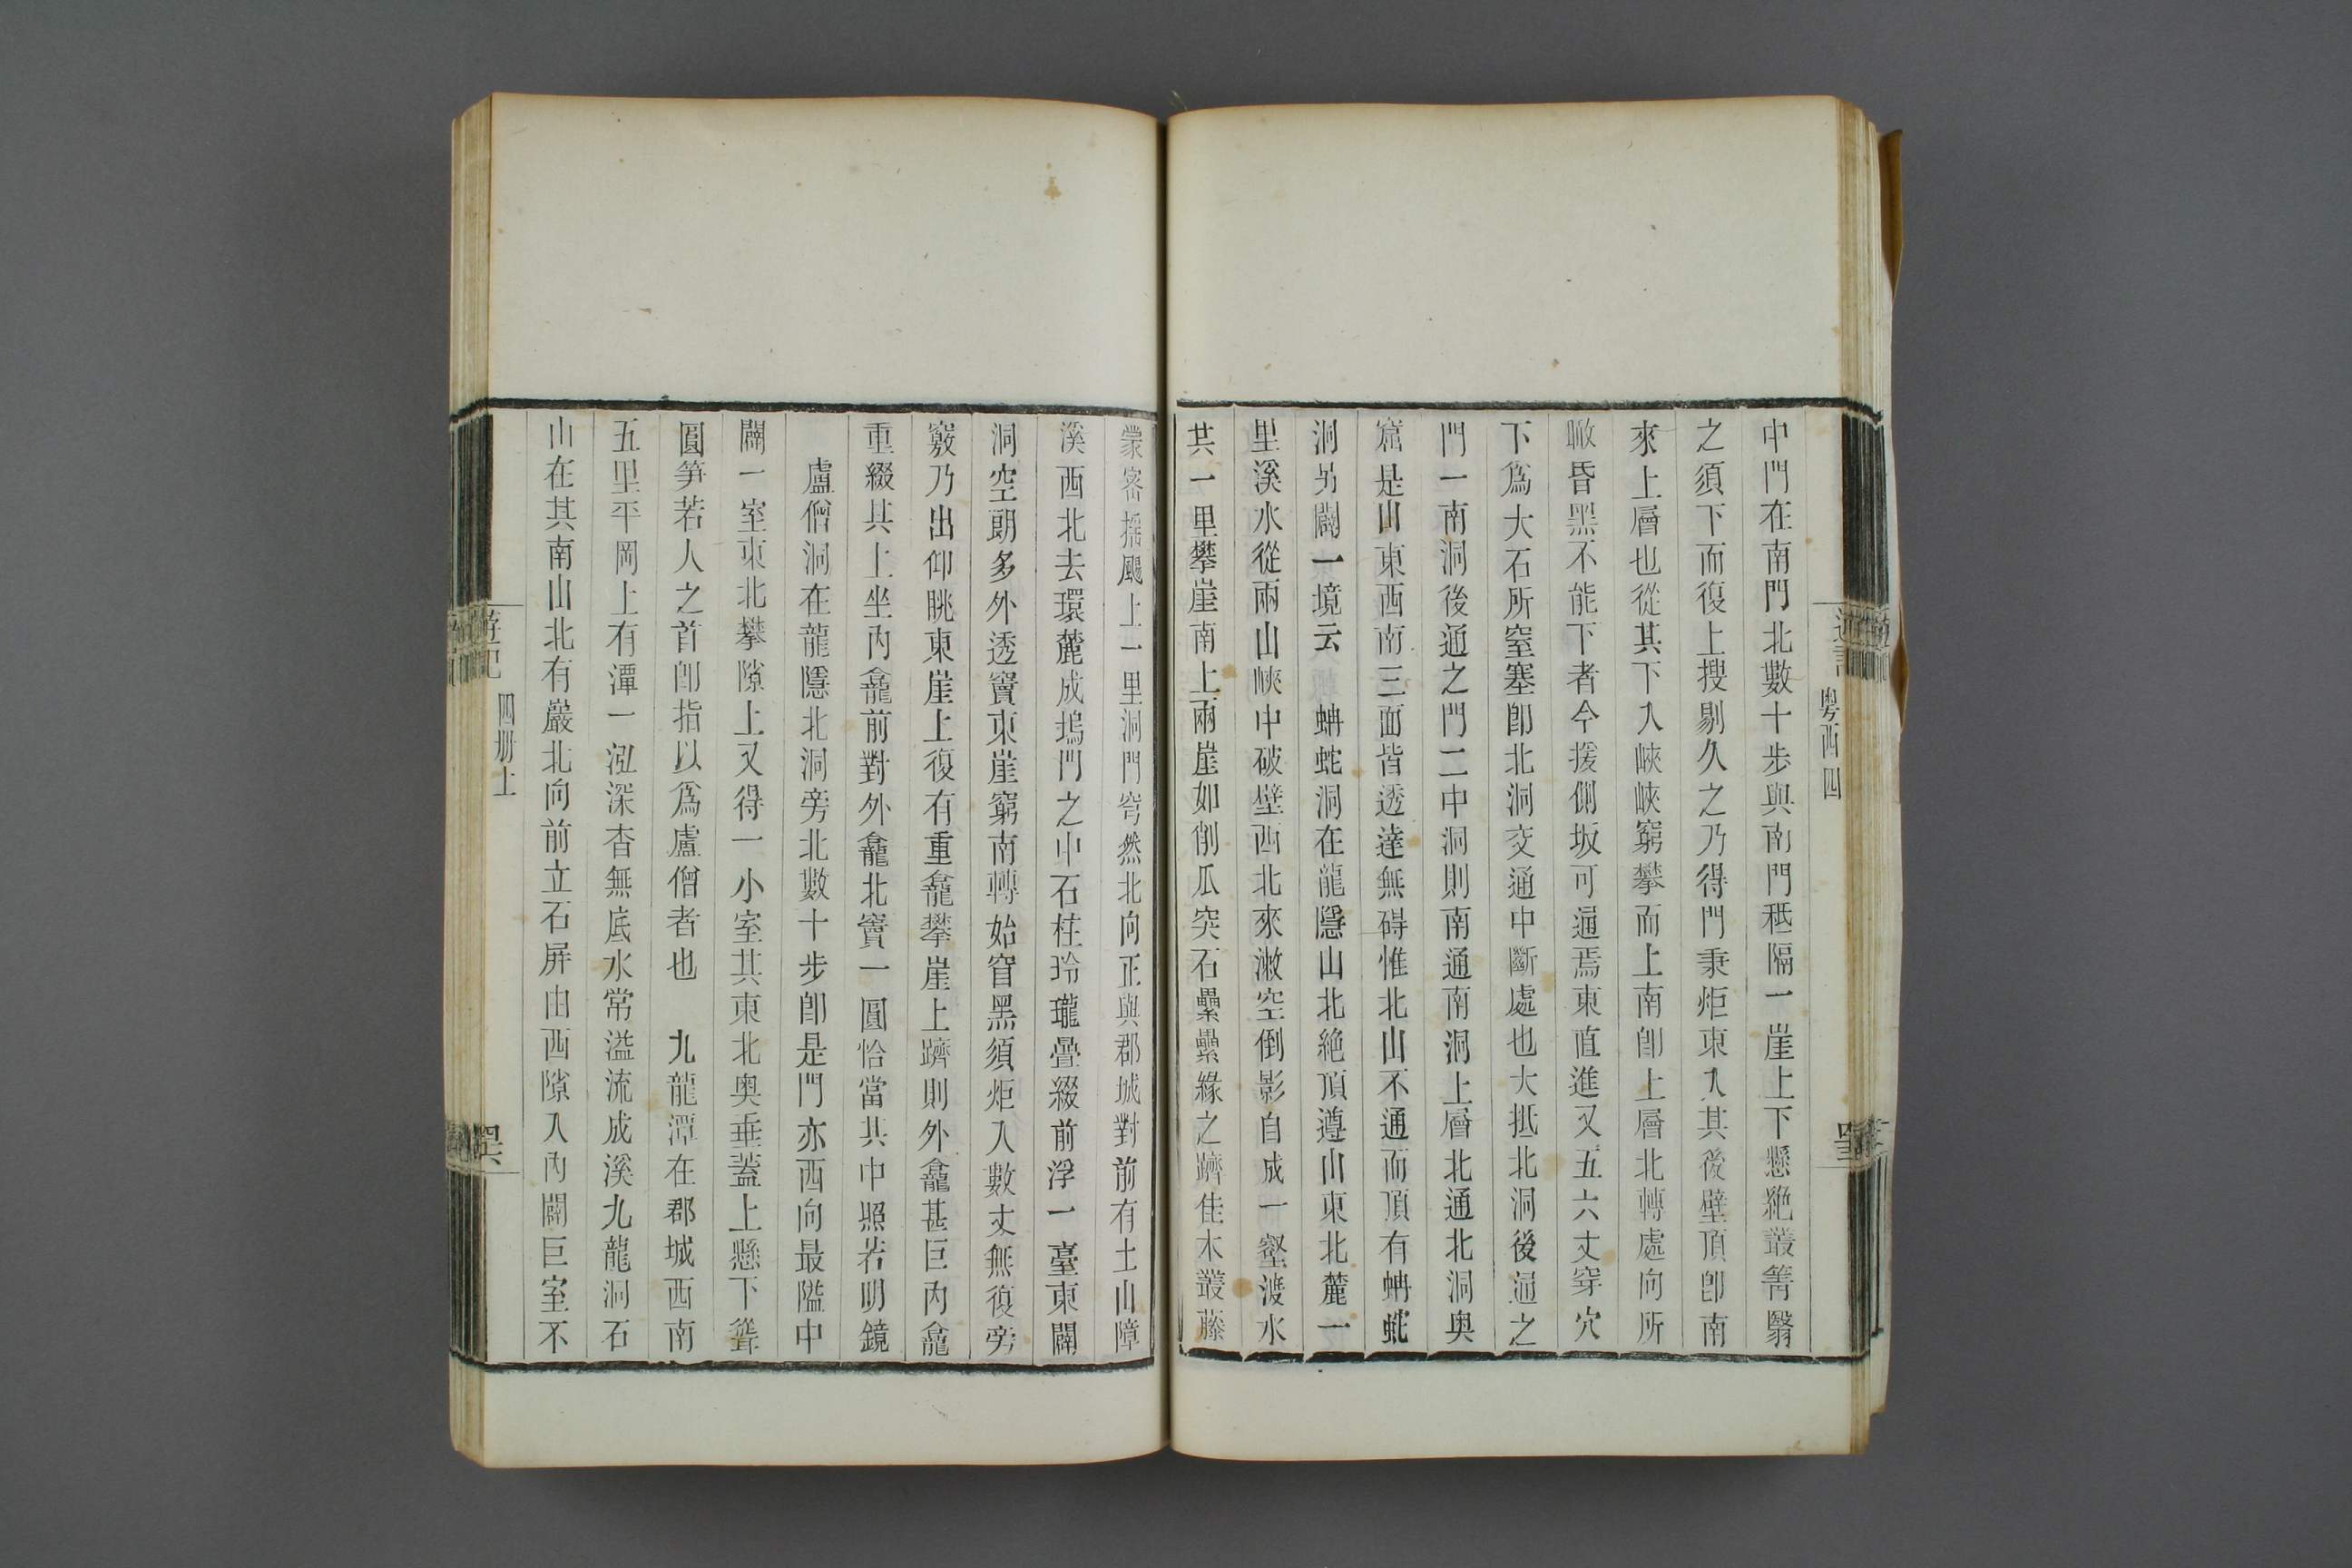 粤西四
中門在南門北數十步與南門秪隔一崖上下懸絶叢箐翳
之須下而復上搜剔久之乃得門秉炬東入其後壁頂卽南
來上層也從其下入峽峽窮攀而上南卽上層北轉處向所
瞰昏黑不能下者今援側坂可逼焉東直進又五六丈穿穴
下爲大石所窒塞卽北洞交通中斷處也大抵北洞後通之
門一南洞後通之門二中洞則南通南洞上層北通北洞奥
窟是山東西南三面皆透達無碍惟北山不通而頂有蚺蛇
洞另闢一境云　蚺蛇洞在龍隱山北絶頂遵山東北麓一
里溪水從兩山峽中破壁西北來漱空倒影自成一壑渡水
共一里攀崖南上兩崖如削瓜突石纍纍緣之躋佳木叢藤
蒙密摇颺上一里洞門穹然北向正與郡城對前有土山障
溪西北去環麓成塢門之中石柱玲瓏疊綴前浮一臺東闢
洞空朗多外透竇東崖窮南轉始窅黑須炬入數丈無復旁
竅乃出仰眺東崖上復有重龕攀崖上躋則外龕甚巨内龕
重綴其上坐内龕前對外龕北竇一圓恰當其中照若明鏡
盧僧洞在龍隱北洞旁北數十步卽是門亦西向最隘中
闢一室東北攀隙上又得一小室其東北奥垂蓋上懸下聳
圓笋若人之首卽指以爲盧僧者也　九龍潭在郡城西南
五里平岡上有潭一泓深杳無底水常溢流成溪九龍洞石
山在其南山北有巖北向前立石屏由西隙入内闢巨室不
遊記　四册上